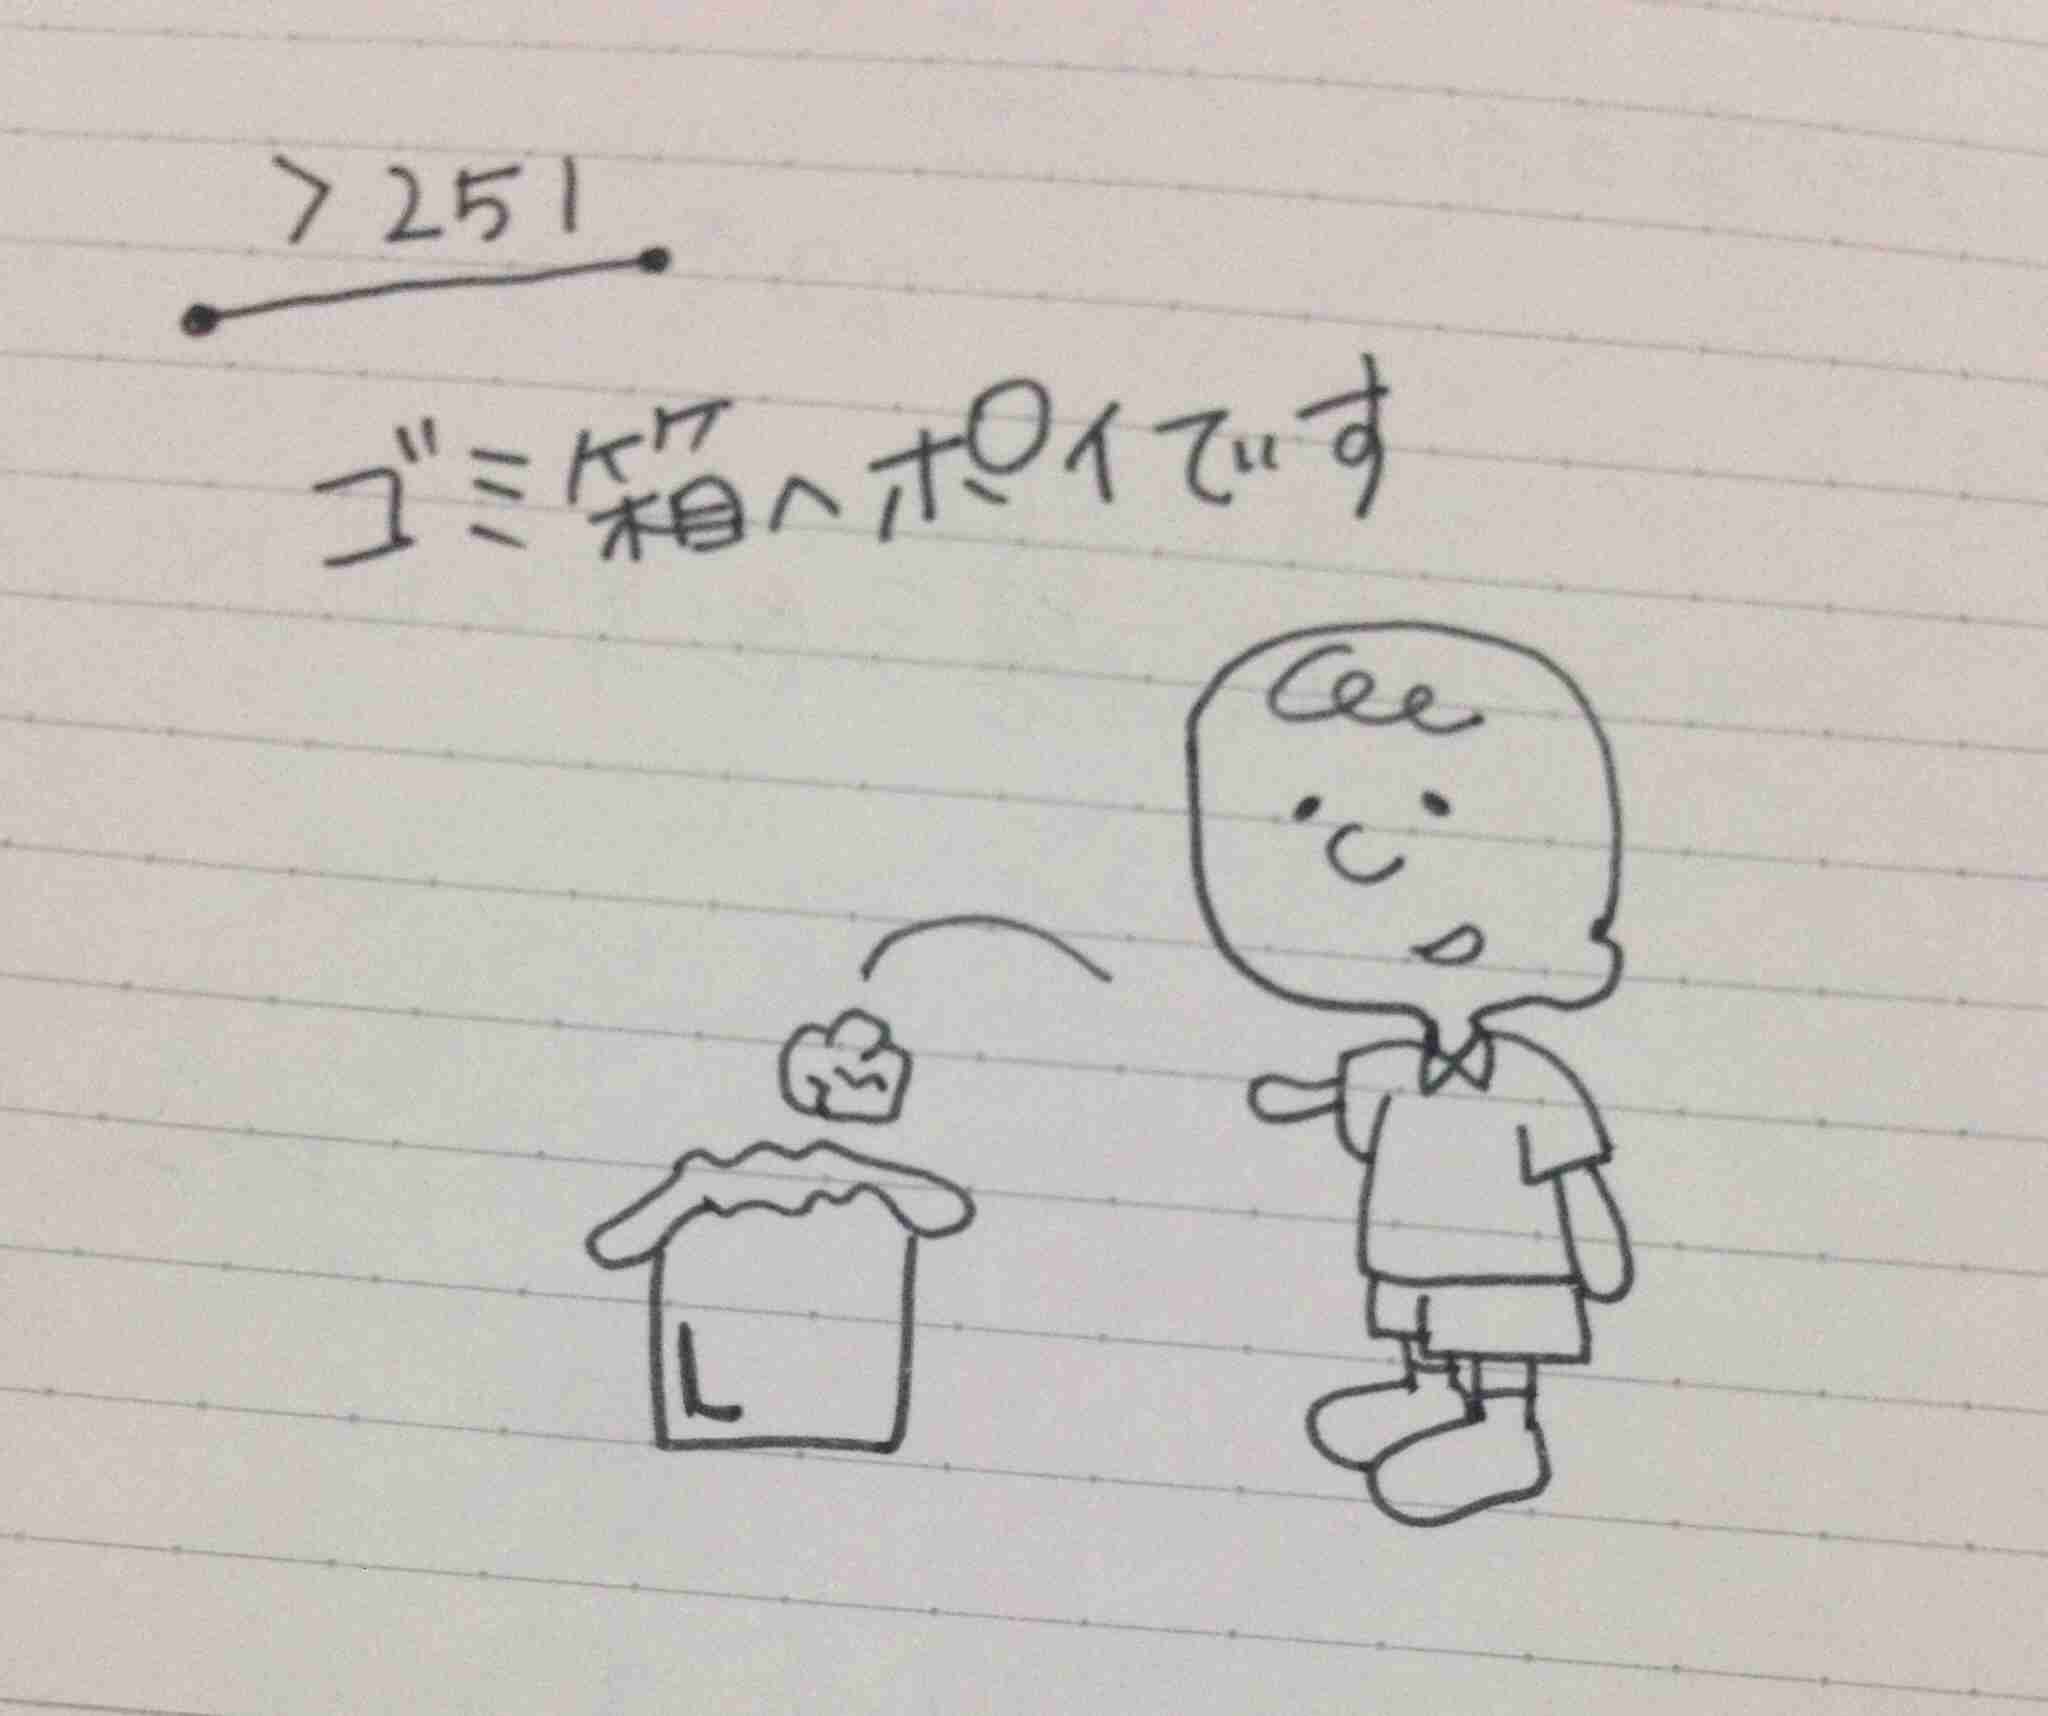 >251
ゴミ箱へポイです